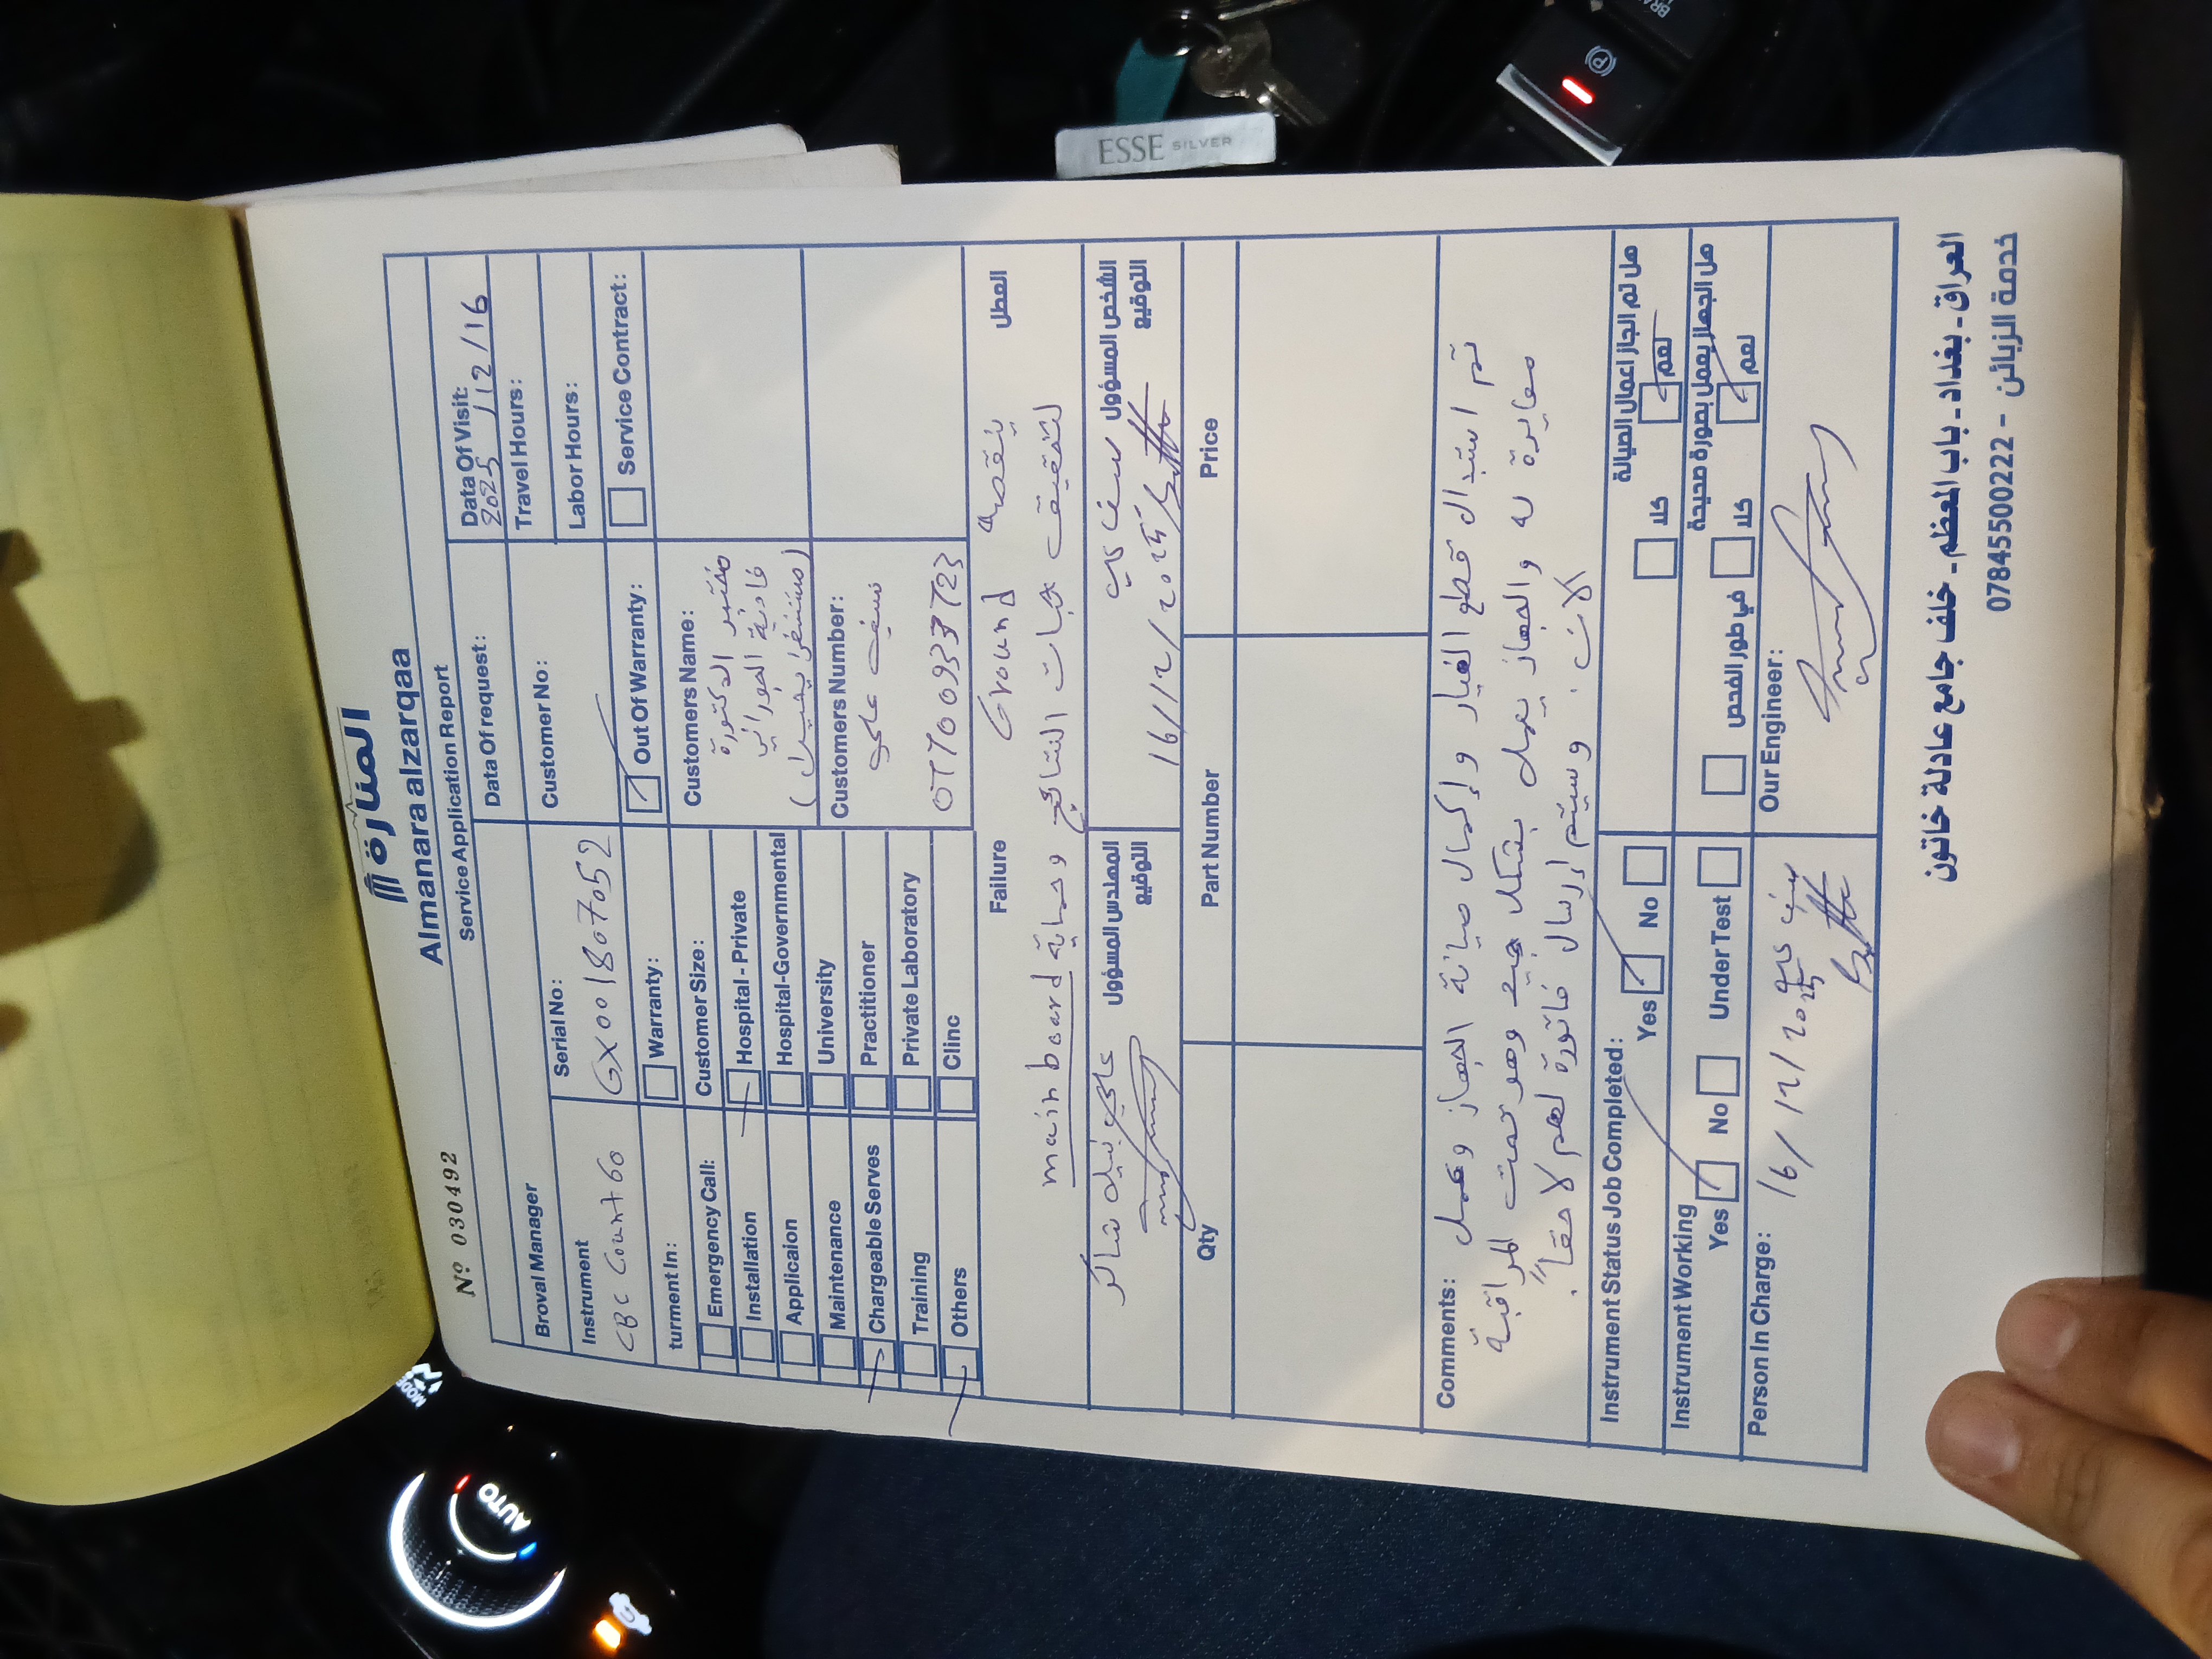 المنارة
Almanara alzarqaa
Nº 030492
Service Application Report
Broval Manager
Data Of request:
Data Of Visit:
2025/12/16
Instrument
CBC Count 60
Serial No:
GX001807052
Customer No:
Travel Hours:
Labor Hours:
turment In:
Warranty:
Out Of Warranty:
Service Contract:
Emergency Call:
Installation
Applicaion
Maintenance
Chargeable Serves
Training
Others
Customer Size:
Hospital - Private
Hospital-Governmental
University
Practitioner
Private Laboratory
Clinc
Customers Name:
مختبر الدكتورة
فادية الحوراني
Customers Number:
سيف علي
Failure
العطل
ينقصه Ground
لتخفيف هبات النتائج وحماية main board
المهندس المسؤول
التوقيع
علي نبيل شاكر
الشخص المسؤول
التوقيع
سيف علي
16/12/2025
Qty
Part Number
Price
Comments:
تم استبدال قطع الغيار وإكمال صيانة الجهاز وعمل
معايرة له والجهاز يعمل بشكل جيد وهو تحت المراقبة
الآن. وسيتم إرسال فاتورة لهم لاحقاً.
Instrument Status Job Completed:
Yes
No
كلا
نعم
هل تم انجاز اعمال الصيانة
Instrument Working
Yes
No
Under Test
في طور الفحص
كلا
نعم
هل الجهاز يعمل بصورة صحيحة
Person In Charge:
سيف علي
16/12/2025
Our Engineer:
العراق - بغداد - باب المعظم - خلف جامع عادلة خاتون
خدمة الزبائن - 07845500222
ESSE SILVER
AUTO
MODE